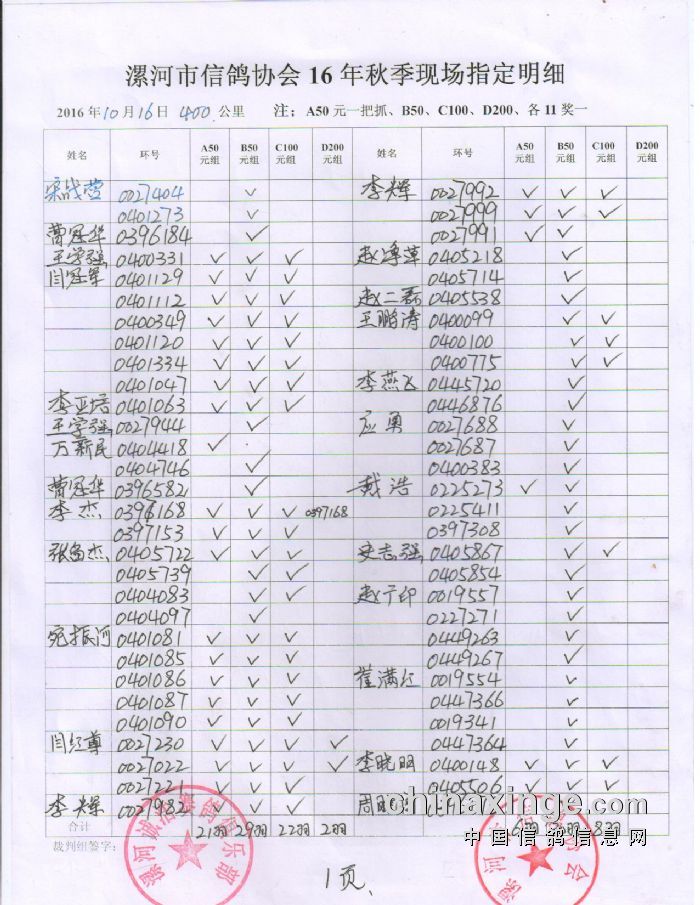 漯河市信鸽协会16年秋季现场指定明细
2016年10月16日 400公里 注：A50元一把抓、B50、C100、D200、各11奖一
姓名 环号 A50元组 B50元组 C100元组 D200元组 姓名 环号 A50元组 B50元组 C100元组 D200元组
宋战营 0027404 ✓ 李辉 0027992 ✓ ✓ ✓
0401273 ✓ 0027999 ✓ ✓ ✓
曹冠华 0396184 ✓ 0027991 ✓ ✓
王学强 0400331 ✓ ✓ ✓ 0405218 ✓
闫冠军 0401129 ✓ ✓ ✓ 0405714 ✓
0401112 ✓ ✓ ✓ 赵二磊 0405538 ✓
0400349 ✓ ✓ ✓ 王鹏涛 0400099 ✓ ✓
0401120 ✓ ✓ ✓ 0400100 ✓ ✓
0401334 ✓ ✓ ✓ 0400775 ✓ ✓
0401047 ✓ ✓ ✓ 李燕飞 0445720 ✓
李亚培 0401063 ✓ ✓ ✓ 0446876 ✓
王学强 0027944 ✓ 应勇 0027688 ✓
万新民 0404418 ✓ 0027687 ✓
0404746 ✓ 0400383 ✓
曹冠华 0396582 ✓ 戴浩 0225273 ✓ ✓
李杰 0396168 ✓ ✓ ✓ 0397168 0225411 ✓
0397153 ✓ ✓ ✓ 0397308 ✓
张富杰 0405722 ✓ ✓ ✓ 史志强 0405867 ✓ ✓
0405739 ✓ ✓ 0405854 ✓
0404083 ✓ ✓ 赵广印 0019557 ✓
0404097 ✓ 0227271 ✓
宛振河 0401081 ✓ ✓ ✓ 0449263 ✓
0401085 ✓ ✓ ✓ 0449267 ✓
0401086 ✓ ✓ ✓ 崔满红 0019554 ✓
0401087 ✓ ✓ ✓ 0447366 ✓
0401090 ✓ ✓ ✓ 0019341 ✓
闫红尊 0027230 ✓ ✓ ✓ ✓ 0447364 ✓
0027022 ✓ ✓ ✓ ✓ 李晓明 0400148 ✓ ✓ ✓
0027221 ✓ ✓ ✓ 0405506 ✓ ✓ ✓
李辉 0027982 ✓ ✓ ✓ 周
合计 21羽 29羽 22羽 2羽 8羽
裁判组签字：
漯河诚信赛鸽俱乐部
chinaxinge.com
中国信鸽信息网
1页、